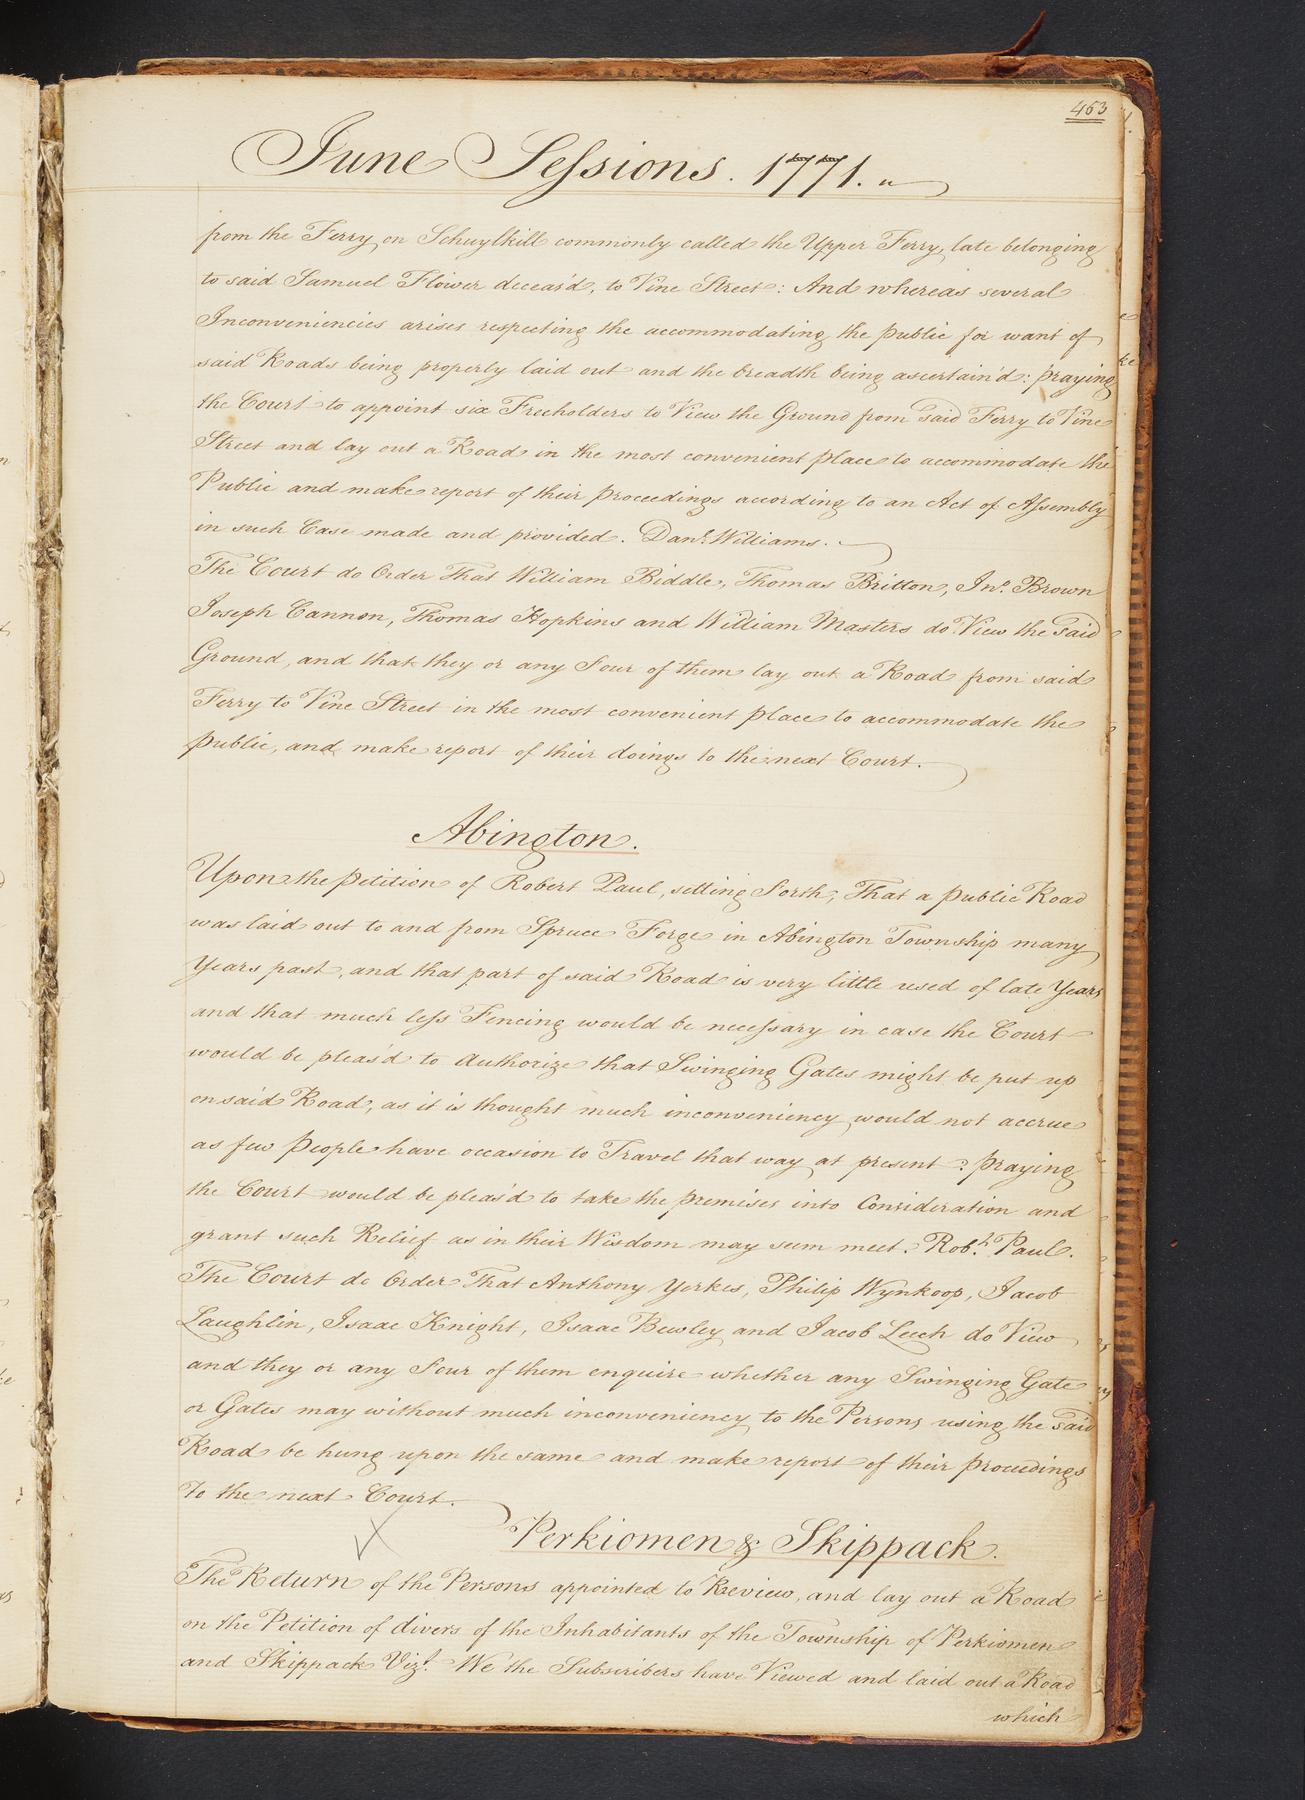 463
June Sessions. 1771.
from the Ferry on Schuylkill commonly called the Upper Ferry, late belonging
to said Samuel Flower deceas'd, to Vine Street: And whereas several
Inconveniencies arises respecting the accommodating the public for want of
said Roads being properly laid out and the breadth being ascertain'd: praying
the Court to appoint six Freeholders to View the Ground from said Ferry to Vine
Street and lay out a Road in the most convenient place to accommodate the
Public and make report of their proceedings according to an Act of Assembly
in such Case made and provided. Danl. Williams.
The Court do Order That William Biddle, Thomas Britton, Jno. Brown
Joseph Cannon, Thomas Hopkins and William Masters do View the said
Ground, and that they or any Four of them lay out a Road from said
Ferry to Vine Street in the most convenient place to accommodate the
public, and make report of their doings to the next Court.
Abington.
Upon the petition of Robert Paul, setting Forth, That a public Road
was laid out to and from Spruce Forge in Abington Township many
Years past, and that part of said Road is very little used of late Years
and that much less Fencing would be necessary in case the Court
would be pleas'd to Authorize that Swinging Gates might be put up
on said Road, as it is thought much inconveniency would not accrue
as few People have occasion to Travel that way at present: praying
the Court would be pleas'd to take the premises into Consideration and
grant such Relief as in their Wisdom may seem meet. Robt. Paul.
The Court do Order That Anthony Yerkes, Philip Wynkoop, Jacob
Laughlin, Isaac Knight, Isaac Bewley and Jacob Leech do View
and they or any Four of them enquire whether any Swinging Gate
or Gates may without much inconveniency to the Persons using the said
Road be hung upon the same and make report of their proceedings
to the next Court.
Perkiomen & Skippack.
The Return of the Persons appointed to Review, and lay out a Road
on the Petition of divers of the Inhabitants of the Township of Perkiomen
and Skippack Vizt. We the Subscribers have Viewed and laid out a Road
which